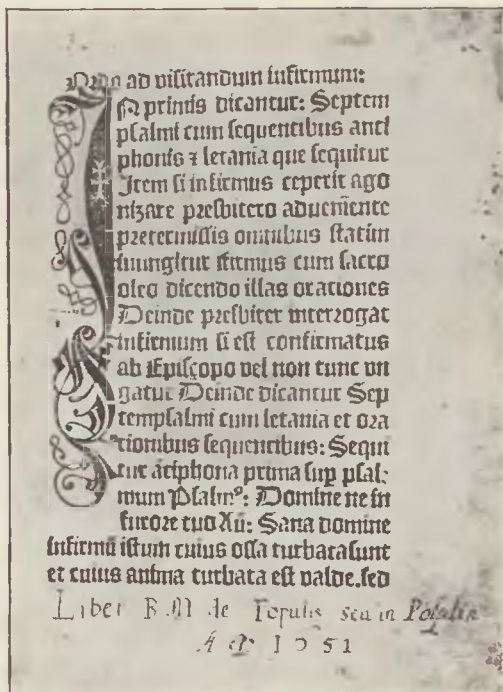 Ordo ad visitandum infirmum:
IN primis dicantur: Septem
psalmi cum sequentibus anti
phonis ⁊ letania que sequitur
Item si infirmus ceperit ago
nizare presbitero adueniente
pretermissis omnibus statim
inungitur ifirmus cum sacro
oleo dicendo illas orationes
Deinde presbiter interrogat
infirmum si est confirmatus
ab Episcopo vel non tunc vn
gatur Deinde dicantur Sep
tempsalmi cum letania et ora
tionibus sequentibus: Sequi
tur ātiphona prima sup psal-
mum Psalmº: Domine ne in
furore tuo Añ: Sana domine
infirmū istum cuius ossa turbata sunt
et cuius anima turbata est valde. sed
Liber B. M. de Topulis seu in
1651